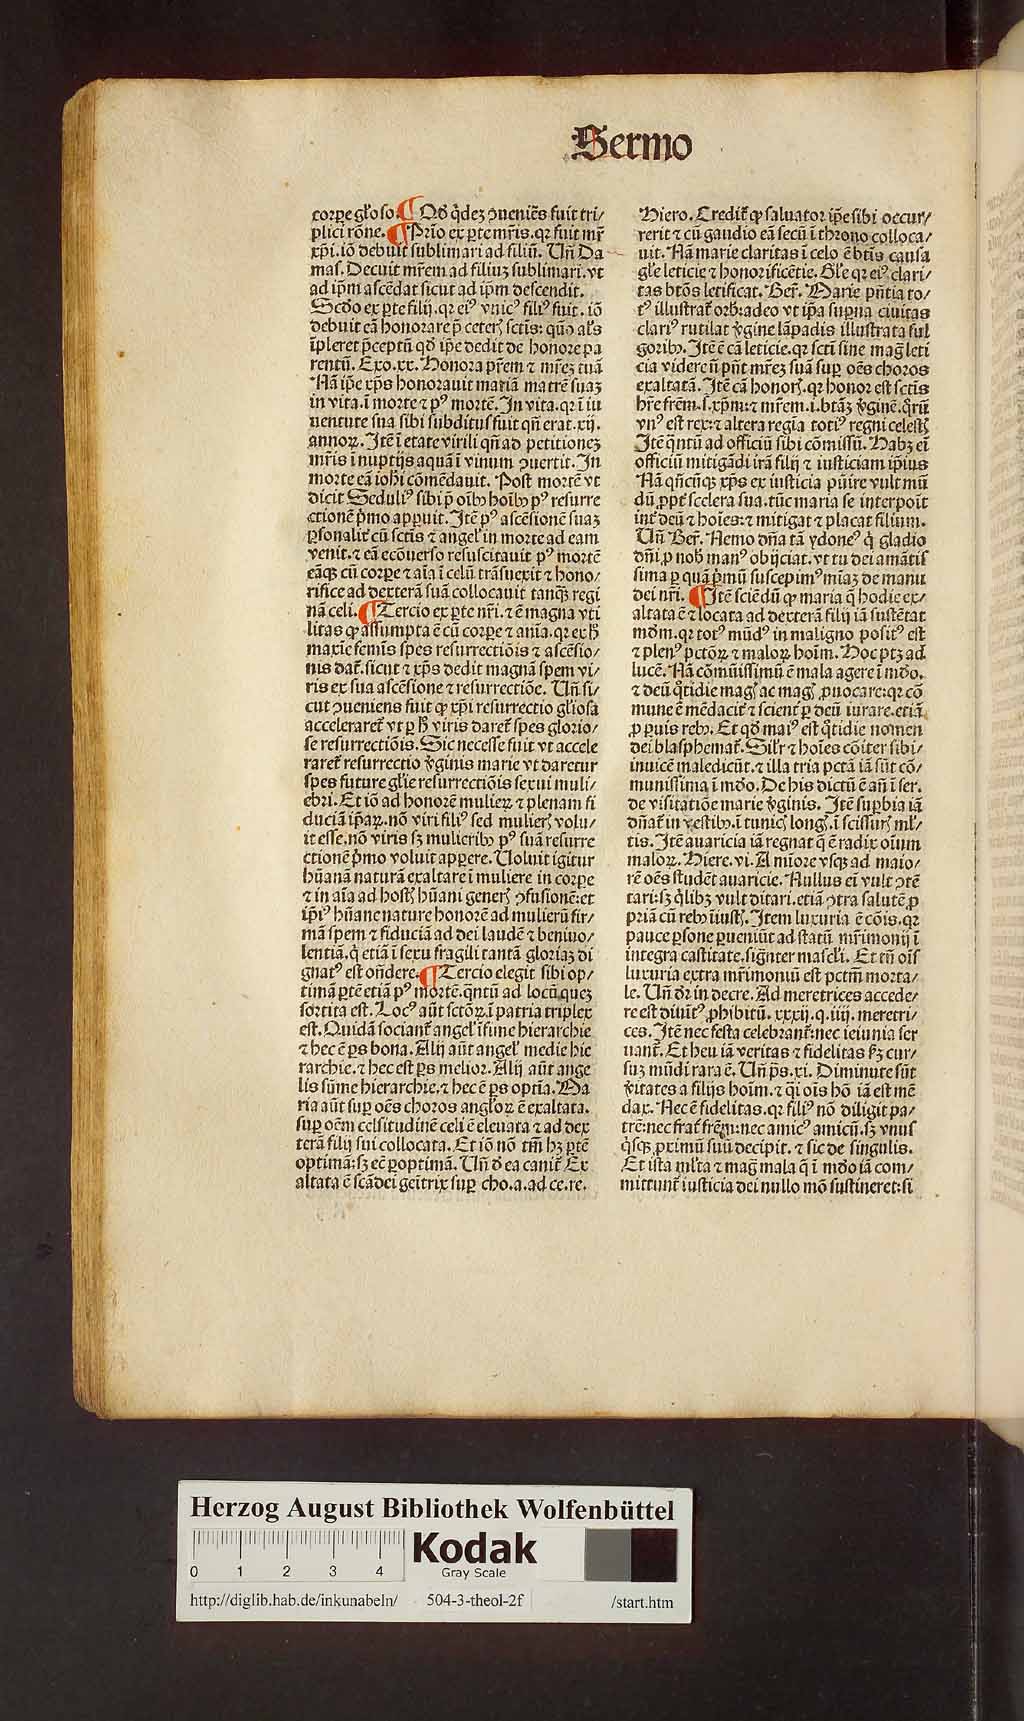 Sermo
corꝑe gl̓oso. ¶ Qd̓ q̇deꝫ ꝯueniēs fuit tri/
plici rōne. ¶ Prīo ex ꝑte mr̄is. qꝛ fuit mr̄
xp̄i. iō debuit sublimari ad filiū. Un̄ Da
mas. Decuit mr̄em ad filiuꝫ sublimari. vt
ad ip̄m ascēdat sicut ad ip̄m descendit.
Scd̓o ex ꝑte filij. qꝛ eiꝰ vnicꝰ filiꝰ fuit. iō
debuit eā honorare p̄ ceteꝝ sctīs: quō al̓s
īpleret p̄ceptū qd̓ ip̄e dedit de honore pa
rentū. Exo. xx. Honora pr̄em ⁊ mr̄eꝫ tuā
Nā ip̄e xp̄s honorauit mariā matrē suaꝫ
in vita. ī morte ⁊ pꝰ mortē. In vita. qꝛ ī iu
uentute sua sibi subditus fuit qn̄ erat. xij.
annoꝝ. Itē ī etate virili qn̄ ad petitioneꝫ
mr̄is ī nuptijs aquā ī vinum ꝯuertit. In
morte eā ioh̄i cōmēdauit. Post mortē vt
dicit Seduliꝰ sibi p̄ oībꝰ hoībꝰ pꝰ resurre
ctionē p̄mo apꝑuit. Itē pꝰ ascēsionē suaꝫ
ꝑsonalit̓ cū sctīs ⁊ angel̓ in morte ad eam
venit. ⁊ eā ecōuerso resuscitauit pꝰ mortē
eāqꝫ cū corꝑe ⁊ aīa ī celū trāsuexit ⁊ hono/
rifice ad dexterā suā collocauit tanqꝫ regi
nā celi. ¶ Tercio ex ꝑte nr̄i. ⁊ ē magna vti
litas ꝙ assumpta ē cū corꝑe ⁊ anīa. qꝛ ex hͦ
maxie femīs spes resurrectiōis ⁊ ascēsio/
nis dat̓. sicut ⁊ xp̄s dedit magnā spem vi/
ris ex sua ascēsione ⁊ resurrectiōe. Un̄ si/
cut ꝯueniens fuit ꝙ xp̄i resurrectio gl̓iosa
acceleraret̓ vt ꝑ hͦ viris daret̓ spes glorio/
se resurrectiōis. Sic necesse fuit vt accele
raret̓ resurrectio v̓ginis marie vt daretur
spes future gl̓ie resurrectiōis sexui muli/
ebri. Et iō ad honorē mulieꝝ ⁊ plenam fi
duciā ip̄aꝝ. nō viri filiꝰ sed mulieꝝ volu/
it esse. nō viris sꝫ mulieribꝰ pꝰ suā resurre
ctionē p̄mo voluit apꝑere. Uoluit igitur
hūanā naturā exaltare ī muliere in corꝑe
⁊ in aīa ad hostꝝ hūani generꝝ ꝯfusionē: et
ip̄iꝰ hūane nature honorē ad mulierū fir/
mā spem ⁊ fiduciā ad dei laudē ⁊ beniuo/
lentiā. q̇ etiā ī sexu fragili tantā gloriaꝫ di
gnatꝰ est on̄dere. ¶ Tercio elegit sibi op/
timā ꝑtē etiā pꝰ mortē. q̄ntū ad locū queꝫ
sortita est. Locꝰ aūt sctōꝝ. ī patria triplex
est. Quidā sociant̓ angel̓ īfime hierarchie
⁊ hec ē ꝑs bona. Alij aūt angel̓ medie hie
rarchie. ⁊ hec est ꝑs melior. Alij aūt ange
lis sūme hierarchie. ⁊ hec ē ꝑs optīa. Ma
ria aūt suꝑ oēs choros angl̓oꝝ ē exaltata.
suꝑ oēm celsitudinē celi ē eleuata ⁊ ad dex
terā filij sui collocata. Et iō nō tm̄ hꝫ ꝑtē
optimā: sꝫ ec̄ ꝑoptimā. Un̄ d̓ ea canit̓ Ex
altata ē scā dei geītrix suꝑ cho. a. ad ce. re.
Hiero. Credit̓ ꝙ saluator ip̄e sibi occur/
rerit ⁊ cū gaudio eā secū ī throno colloca/
uit. Nā marie claritas ī celo ē bt̄is causa
gl̓e leticie ⁊ honorificētie. Gl̓e qꝛ eiꝰ clari/
tas bt̄os letificat. Ber̄. Marie pn̄tia to/
tꝰ illustrat̓ orb̓: adeo vt ip̄a suꝑna ciuitas
clariꝰ rutilat v̓gine lāpadis illustrata ful
goribꝰ. Itē ē cā leticie. qꝛ sctī sine mag̓ leti
cia videre n̄ pn̄t mr̄eꝫ suā suꝑ oēs choros
exaltatā. Itē cā honorꝝ. qꝛ honor est sctīs
hr̄e frēm. s. xp̄m: ⁊ mr̄em. i. bt̄āꝫ v̓ginē. q̄rū
vnꝰ est rex: ⁊ altera regia totiꝰ regni celestꝝ
Itē q̄ntū ad officiū sibi cōmissū. Habꝫ ei̅
officiū mitigādi irā filij ⁊ iusticiam ip̄ius
Nā qn̄cūqꝫ xp̄s ex iusticia pūire vult mū
dū ꝓpt̓ scelera sua. tūc maria se interpoīt
int̓ deū ⁊ hoīes: ⁊ mitigat ⁊ placat filium.
Un̄ Ber̄. Nemo dn̄a tā ydoneꝰ q̇ gladio
dn̄i ꝓ nob̓ manꝰ obijciat. vt tu dei amātis
sima ꝑ quā p̄mū suscepimꝰ mīaꝫ de manu
dei nr̄i. ¶ Itē sciēdū ꝙ maria q̄ hodie ex/
altata ē ⁊ locata ad dexterā filij iā sustētat
mūdm. qꝛ totꝰ mūdꝰ in maligno positꝰ est
⁊ plenꝰ pctōꝝ ⁊ maloꝝ hoīm. Hoc ptꝫ ad
lucē. Nā cōmūissimū ē mala agere ī mūdo.
⁊ deū q̊tidie mag̓ ac mag̓ ꝓuocare: qꝛ cō
mune ē mēdacit̓ ⁊ scient̓ ꝑ deū iurare. etiā
ꝓ ꝑuis rebꝰ. Et qd̓ maiꝰ est q̊tidie nomen
dei blasphemat̓. Sil̓r ⁊ hoīes cōiter sibi/
inuicē maledicūt. ⁊ illa tria pctā iā sūt cō/
munissima ī mūdo. De his dictū ē an̄ ī ser.
de visitatiōe marie v̓ginis. Itē suꝑbia iā
dn̄at̓ in vestibꝰ. ī tunicꝝ longꝝ. ī scissurꝝ ml̓/
tis. Itē auaricia iā regnat q̄ ē radix oīum
maloꝝ. Hiere. vi. A mīore vsqꝫ ad maio/
rē oēs studēt auaricie. Nullus ei̅ vult ꝯtē
tari: sꝫ q̇libꝫ vult ditari. etiā ꝯtra salutē ꝓ
priā cū rebꝰ īiustꝝ. Item luxuria ē cōis. qꝛ
pauce ꝑsone ꝑueniūt ad statū mr̄imonij ī
integra castitate. sign̄ter mascl̓i. Et tn̄ oīs
luxuria extra mr̄imoniū est pctm̄ morta/
le. Un̄ dr̄ in decre. Ad meretrices accede/
re est diuītꝰ ꝓhibitū. xxxij. q. iiij. meretri/
ces. Itē nec festa celebrant̓: nec ieiunia ser
uant̓. Et heu iā veritas ⁊ fidelitas sꝫ cur/
suꝫ mūdi rara ē. Un̄ ps. xi. Diminute sūt
v̓itates a filijs hoīm. ⁊ q̇i oīs hō iā est mē
dax. Nec ē fidelitas. qꝛ filiꝰ nō diligit pa/
trē: nec frat̓ frēm: nec amicꝰ amicū. sꝫ vnus
q̇sqꝫ ꝓximū suū decipit. ⁊ sic de singulis.
Et ista ml̓ta ⁊ mag̓ mala q̄ ī mūdo iā com/
mittunt̓ iusticia dei nullo mō sustineret: si
Herzog August Bibliothek Wolfenbüttel
0 1 2 3 4
Kodak
Gray Scale
http://diglib.hab.de/inkunabeln/ 504-3-theol-2f /start.htm